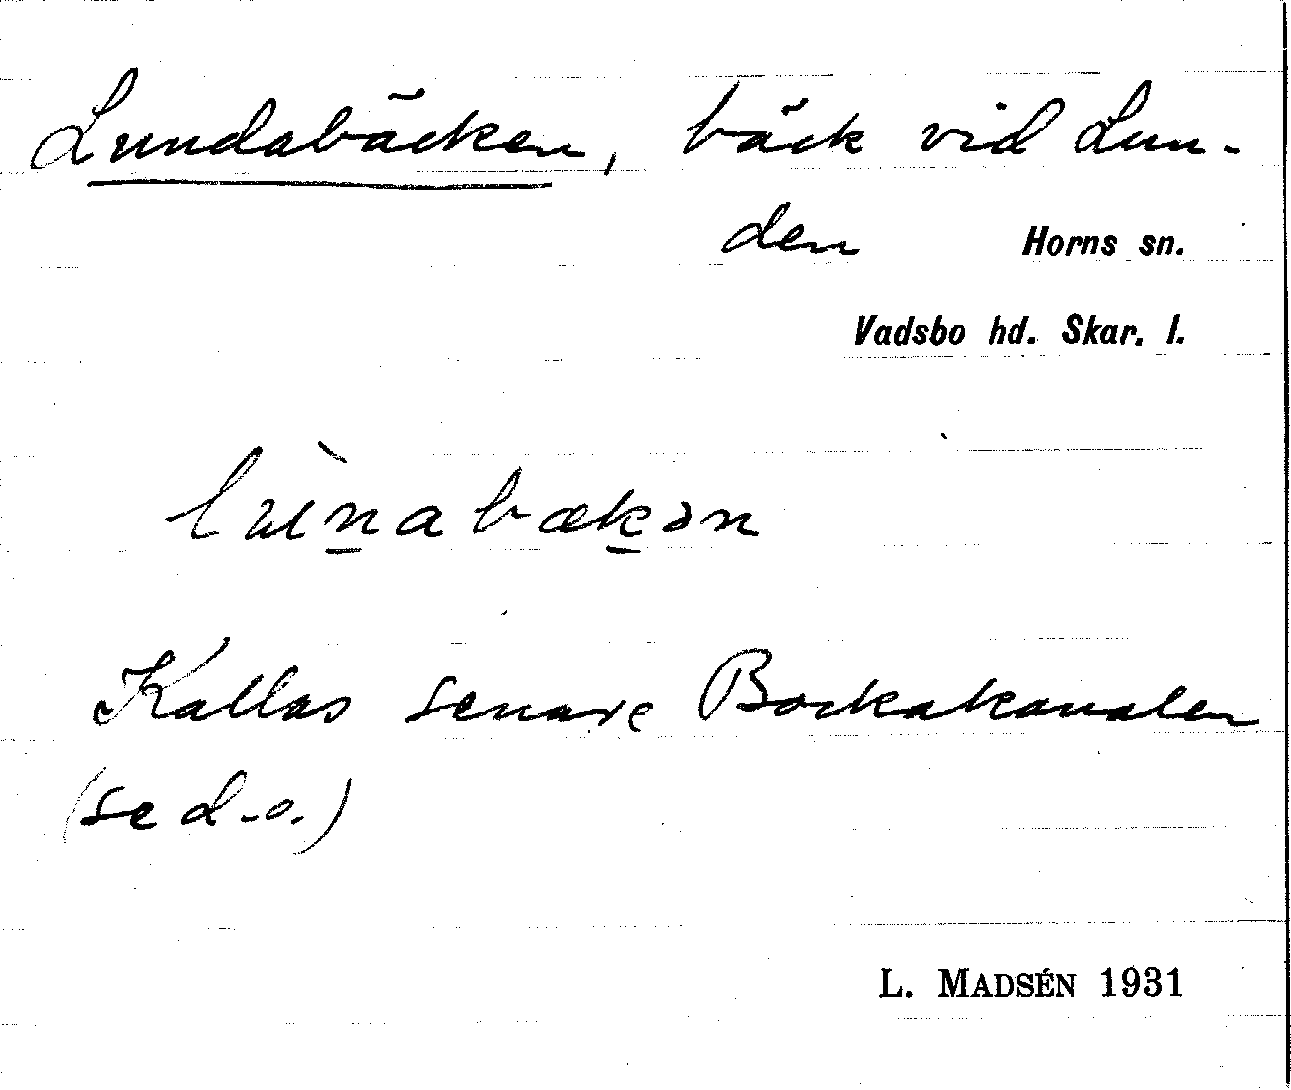 Lundabäcken, bäck vid Lun-
den Horns sn.
Vadsbo hd. Skar. l.
Kallas senare Bockakanalen
(se d.o.)
L. MADSÉN 1931